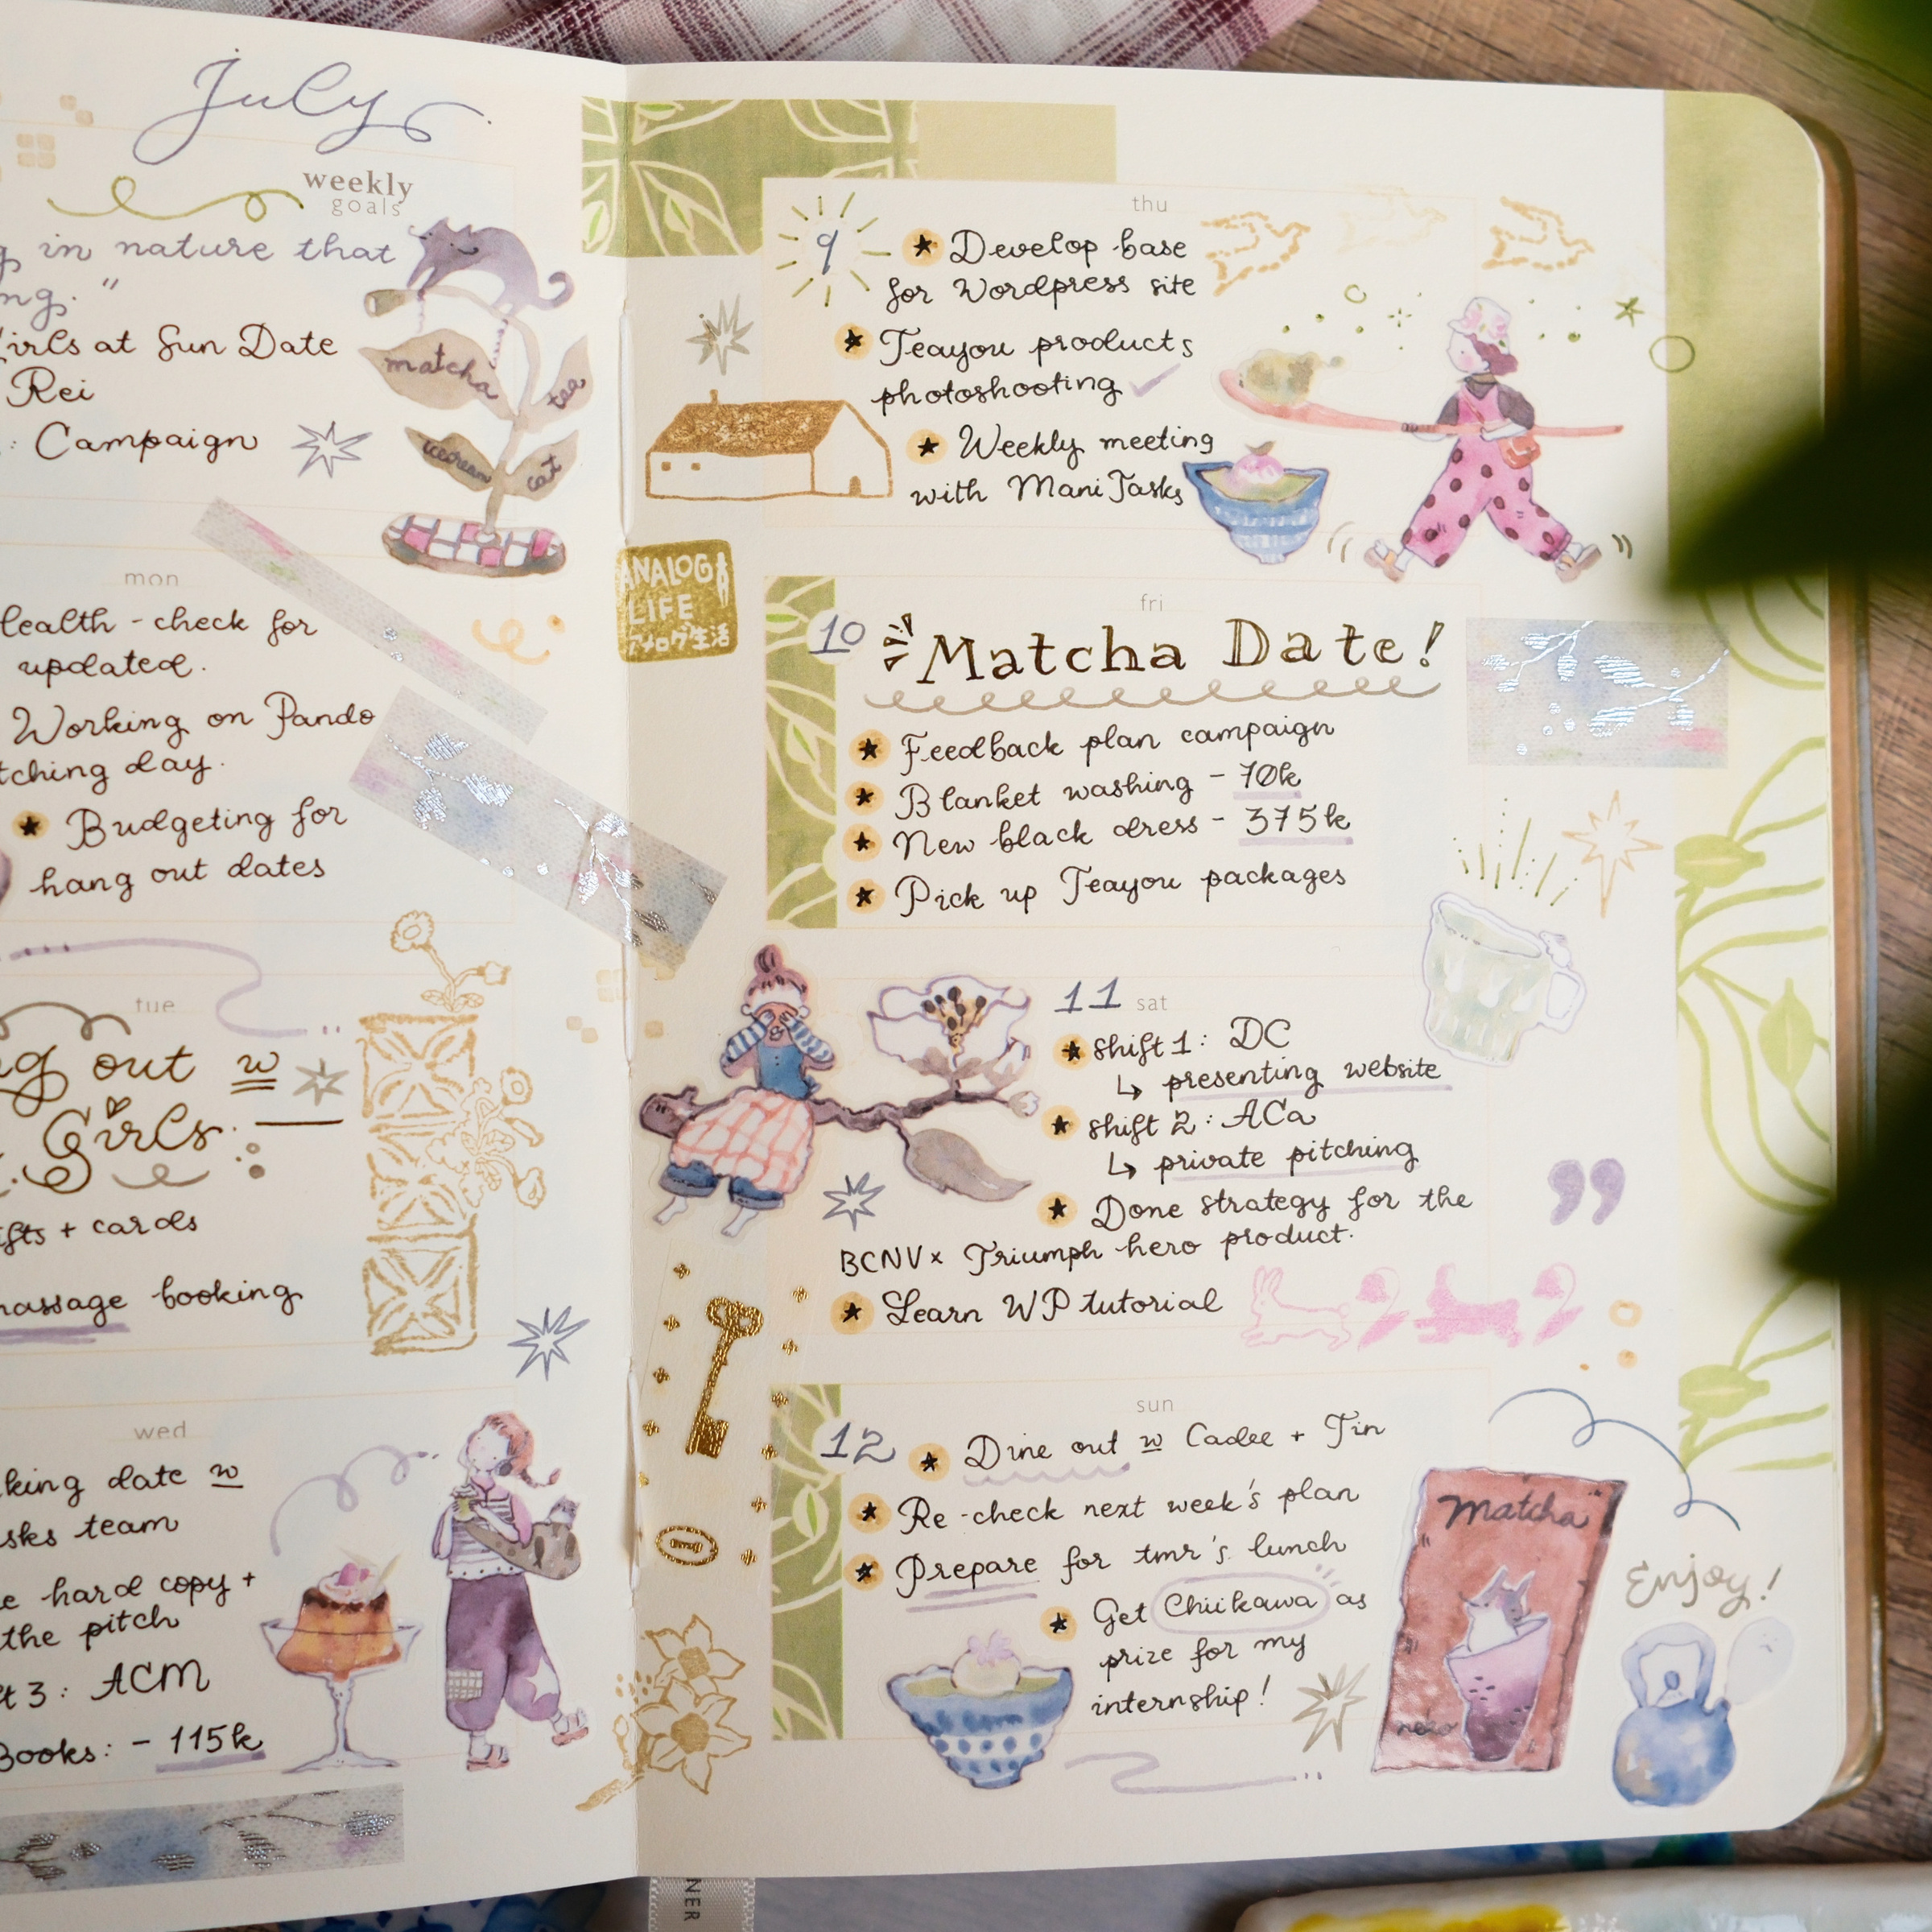 July
weekly
goals
in nature that
"
at Sun Date
Rei
: Campaign
matcha
tea
icecream
cat
mon
check for
updated.
Working on Pando
day.
Budgeting for
hang out dates
tue
out w
Girls.
+ cards
booking
wed
date w
team
hard copy +
the pitch
3: ACM
Books: - 115k
ANALOG
LIFE
アナログ生活
thu
9
Develop base
for Wordpress site
Teayou products
photoshooting ✓
Weekly meeting
with ManiTasks
fri
10 Matcha Date!
Feedback plan campaign
Blanket washing - 70k
New black dress - 375k
Pick up Teayou packages
11 sat
Shift 1: DC
↳ presenting website
Shift 2: ACa
↳ private pitching
Done strategy for the
BCNV x Triumph hero product.
Learn WP tutorial
sun
12 Dine out w Cadee + Tin
Re-check next week's plan
Prepare for tmr's lunch
Get Chiikawa as
prize for my
internship!
Matcha
neko
Enjoy!
NER